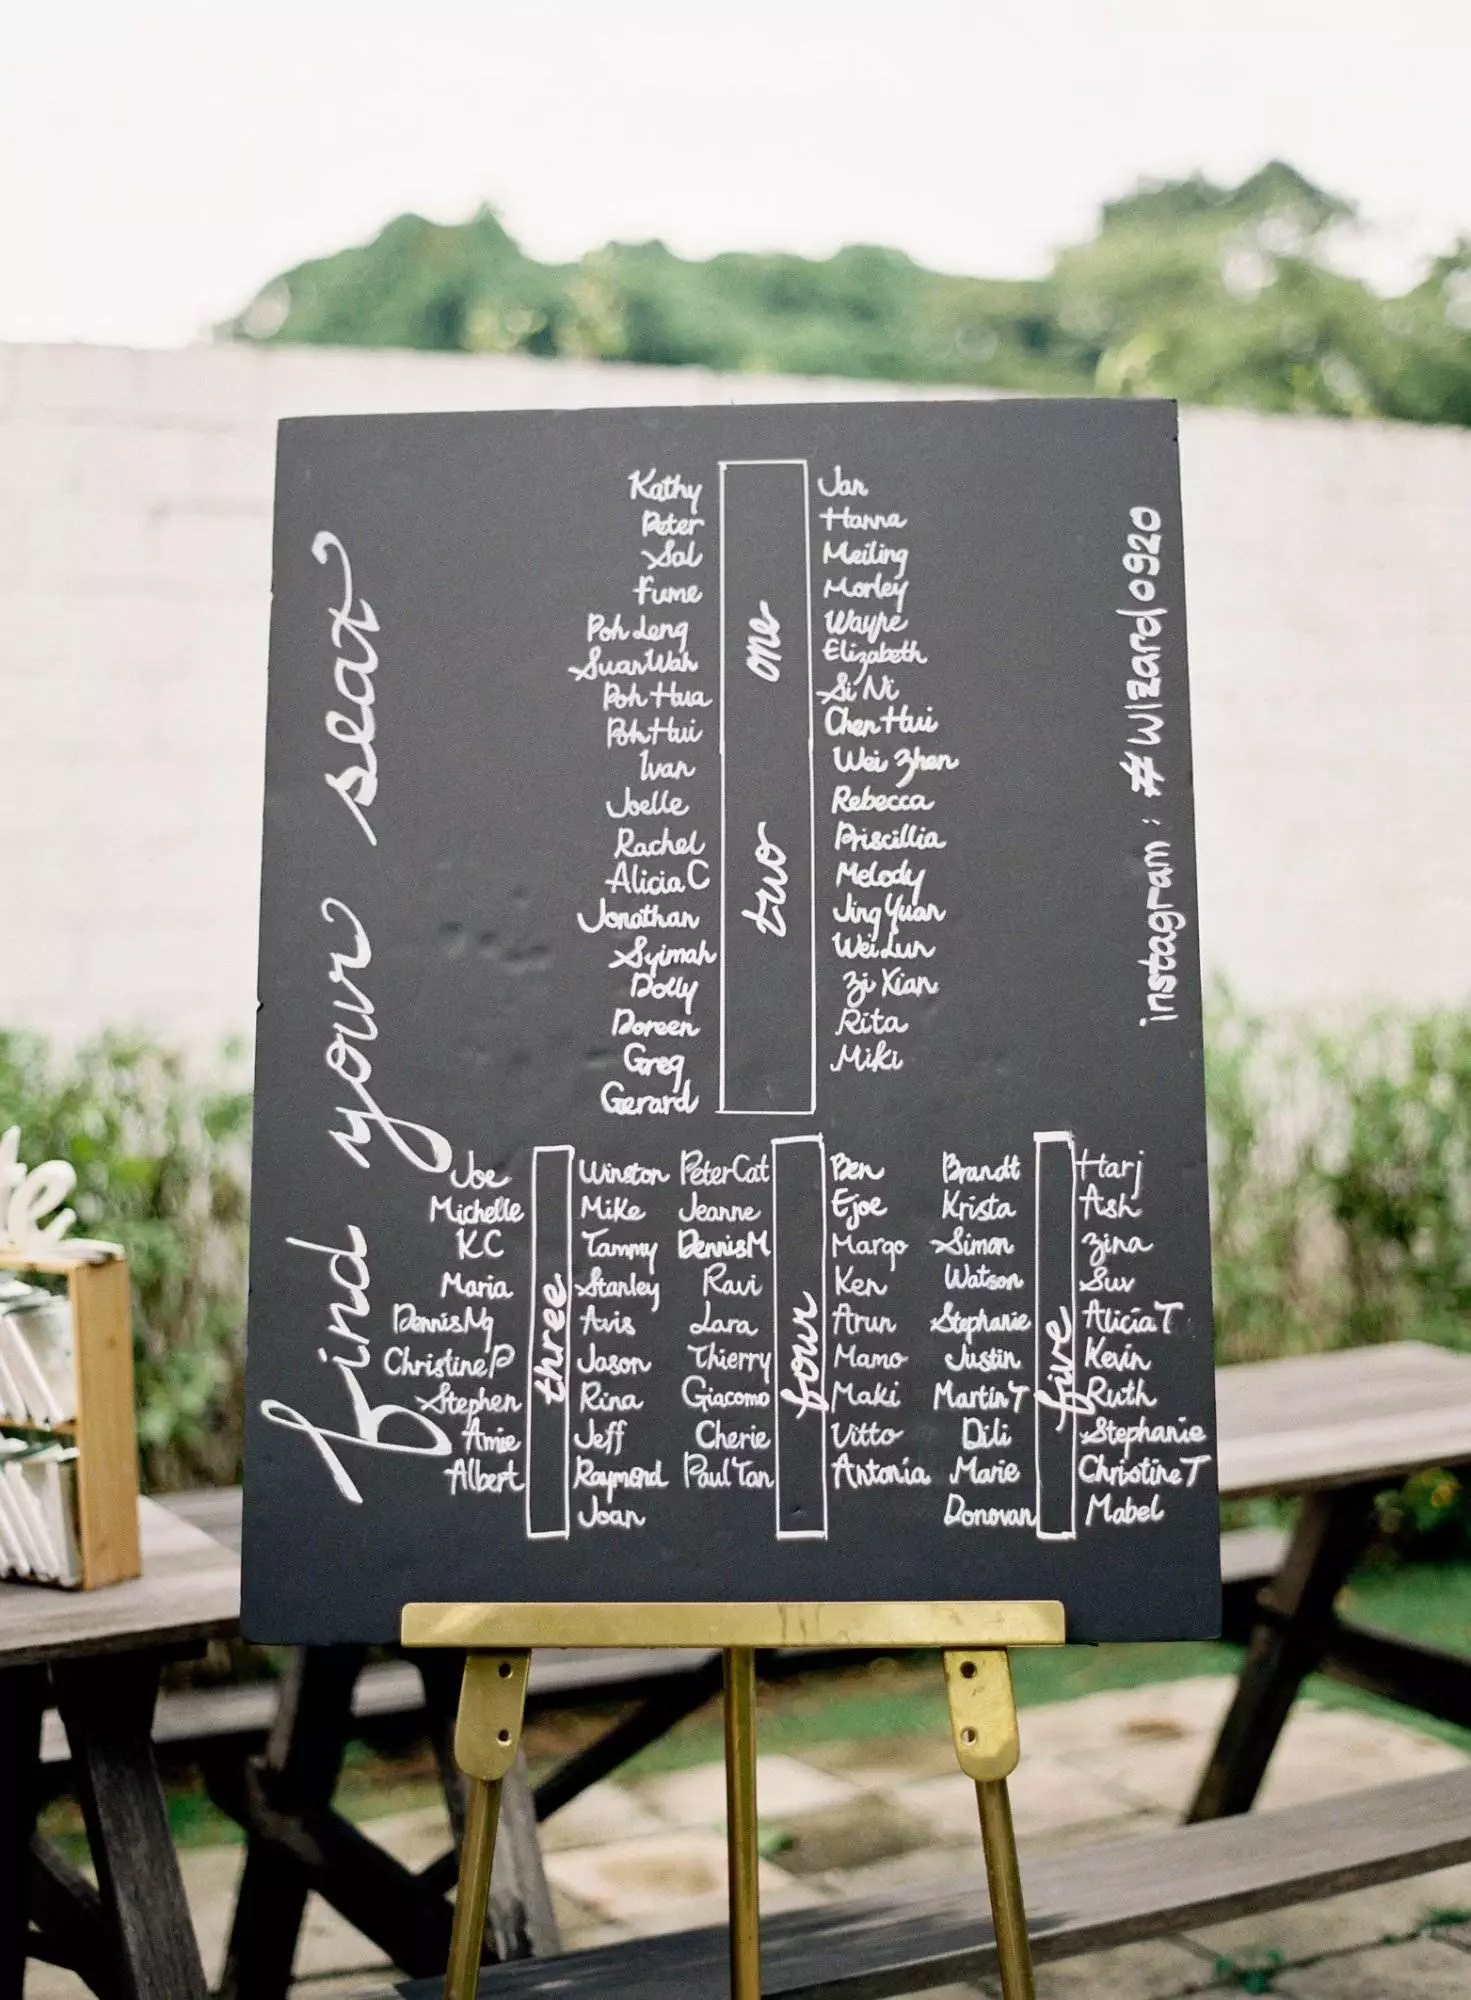 find your seat
Kathy
Peter
Sal
Fume
Poh Leng
Suan Wah
Poh Hua
Poh Hui
Ivan
Joelle
Rachel
Alicia C
Jonathan
Syimah
Dolly
Doreen
Greg
Gerard
one
two
Jan
Hanna
Meiling
Morley
Wayne
Elizabeth
Si Ni
Chen Hui
Wei Zhen
Rebecca
Priscillia
Melody
Jing Yuan
Wei Lun
Zi Xian
Rita
Miki
Joe
Michelle
KC
Maria
Dennis Ng
Christine P
Stephen
Amie
Albert
three
Winston
Mike
Tammy
Stanley
Avis
Jason
Rina
Jeff
Raymond
Joan
Peter Cat
Jeanne
Dennis M
Ravi
Lara
Thierry
Giacomo
Cherie
Paul Tan
four
Ben
Ejoe
Margo
Ken
Arun
Mamo
Maki
Vitto
Antonia
Brandt
Krista
Simon
Watson
Stephanie
Justin
Martin T
Dili
Marie
Donovan
five
Harj
Ash
Zina
Suv
Alicia T
Kevin
Ruth
Stephanie
Christine T
Mabel
instagram : #wizard0920